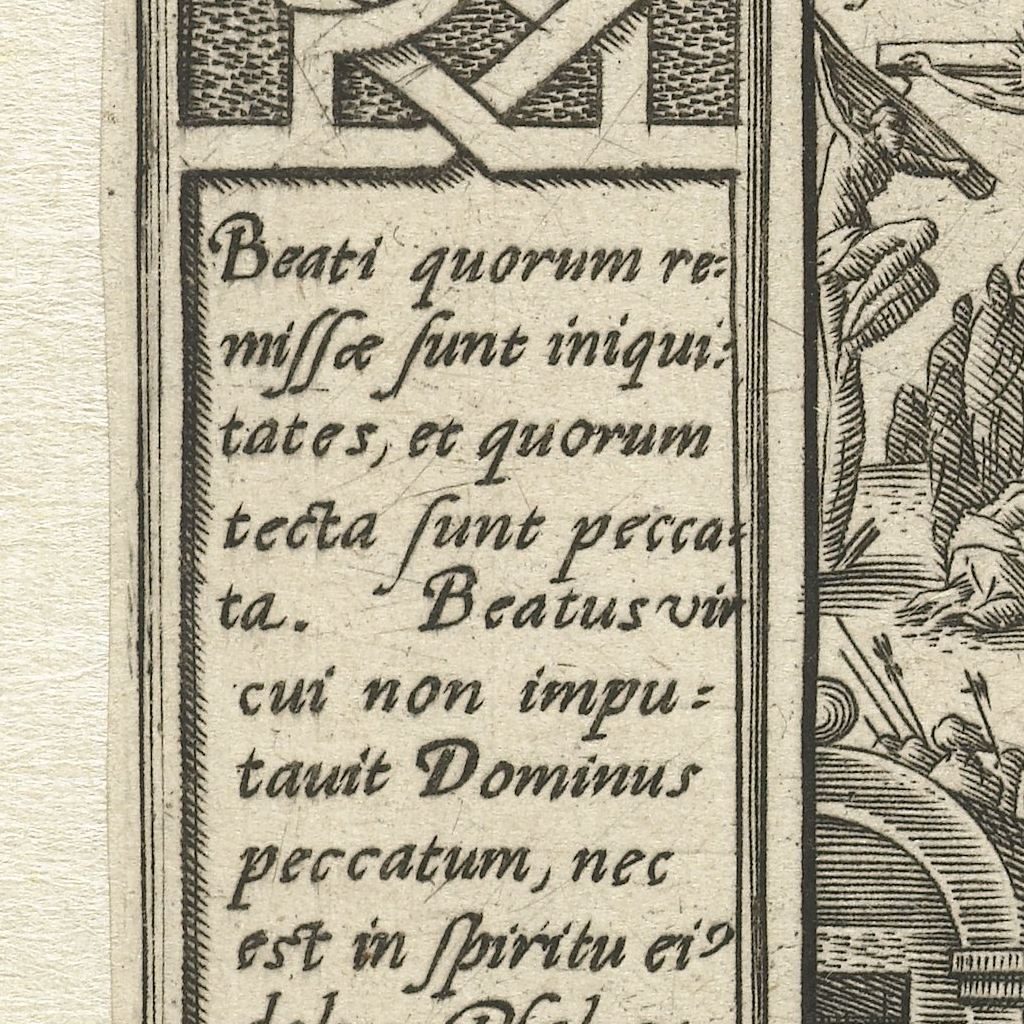 Beati quorum re:
miſſæ ſunt iniqui:
tates, et quorum
tecta ſunt pecca:
ta. Beatus vir
cui non impu:
tauit Dominus
peccatum, nec
est in ſpiritu eiꝰ